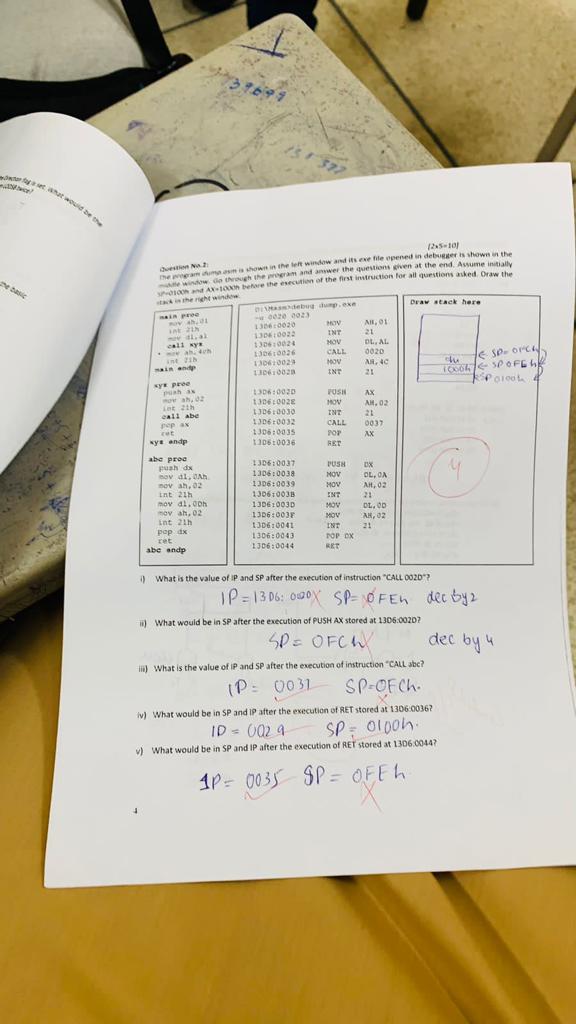 39699
e Direction flag is set. What would be the
the basic
[2x5=10]
Question No.2:
The program dump.asm is shown in the left window and its exe file opened in debugger is shown in the
middle window. Go through the program and answer the questions given at the end. Assume initially
SP=0100h and AX=1000h before the execution of the first instruction for all questions asked. Draw the
stack in the right window.
main proc
mov ah,01
int 21h
mov dl,al
call xyz
mov ah,4ch
int 21h
main endp
xyz proc
push ax
mov ah,02
int 21h
call abc
pop ax
ret
xyz endp
abc proc
push dx
mov dl,0Ah
mov ah,02
int 21h
mov dl,0Dh
mov ah,02
int 21h
pop dx
ret
abc endp
D:\Masm>debug dump.exe
-u 0020 0023
13D6:0020 MOV AH,01
13D6:0022 INT 21
13D6:0024 MOV DL,AL
13D6:0026 CALL 002D
13D6:0029 MOV AH,4C
13D6:002B INT 21
13D6:002D PUSH AX
13D6:002E MOV AH,02
13D6:0030 INT 21
13D6:0032 CALL 0037
13D6:0035 POP AX
13D6:0036 RET
13D6:0037 PUSH DX
13D6:0038 MOV DL,0A
13D6:0039 MOV AH,02
13D6:003B INT 21
13D6:003D MOV DL,0D
13D6:003F MOV AH,02
13D6:0041 INT 21
13D6:0043 POP DX
13D6:0044 RET
Draw stack here
← SP=0FCh
← SP0FEh
1000h
SP0100h
4
i) What is the value of IP and SP after the execution of instruction "CALL 002D"?
IP=13D6:0020 SP=0FEh dec by 2
ii) What would be in SP after the execution of PUSH AX stored at 13D6:002D?
SP=0FCh dec by 4
iii) What is the value of IP and SP after the execution of instruction "CALL abc?
IP= 0037 SP=0FCh.
iv) What would be in SP and IP after the execution of RET stored at 13D6:0036?
IP=0029 SP=0100h.
v) What would be in SP and IP after the execution of RET stored at 13D6:0044?
IP=0035 SP=0FEh.
4